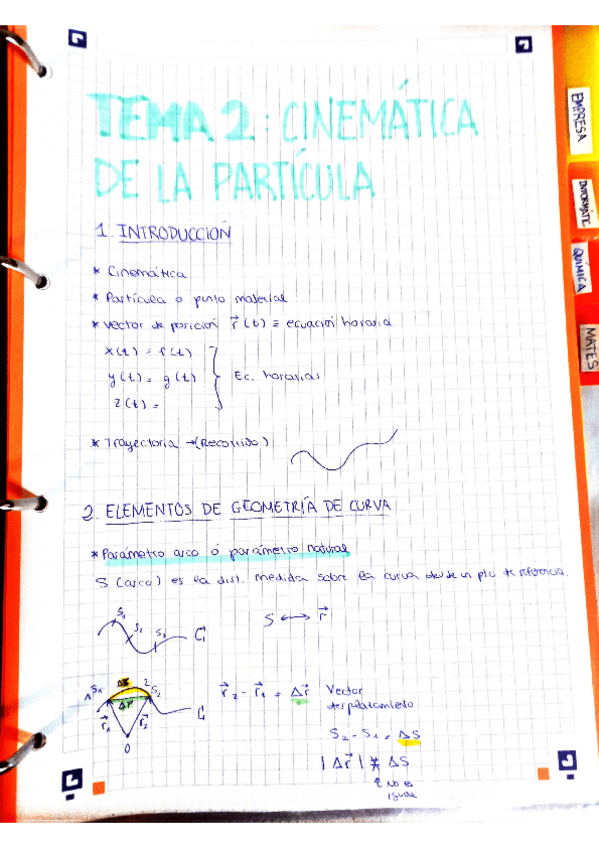 TEMA 2: CINEMÁTICA
DE LA PARTÍCULA
1. INTRODUCCIÓN
* Cinemática
* Partícula o punto material
* Vector de posición r⃗(t) ≡ ecuación horaria
x(t) = f(t)
y(t) = g(t) } Ec. horarias
z(t) =
* Trayectoria →(Recorrido)
2. ELEMENTOS DE GEOMETRÍA DE CURVA
* Parámetro arco ó parámetro natural
S (arco) es la dist. medida sobre la curva desde un pto de referencia.
S₁ S₂ S₃ C
S ⟷ r⃗
1 S₁ ΔS 2 S₂
Δr⃗
r⃗₁ r⃗₂ C
O
r⃗₂ - r⃗₁ = Δr⃗ Vector
desplazamiento
S₂ - S₁ = ΔS
|Δr⃗| ≠ ΔS
↑ No es
igual
EMPRESA
INFORMÁTIC
QUÍMICA
MATES